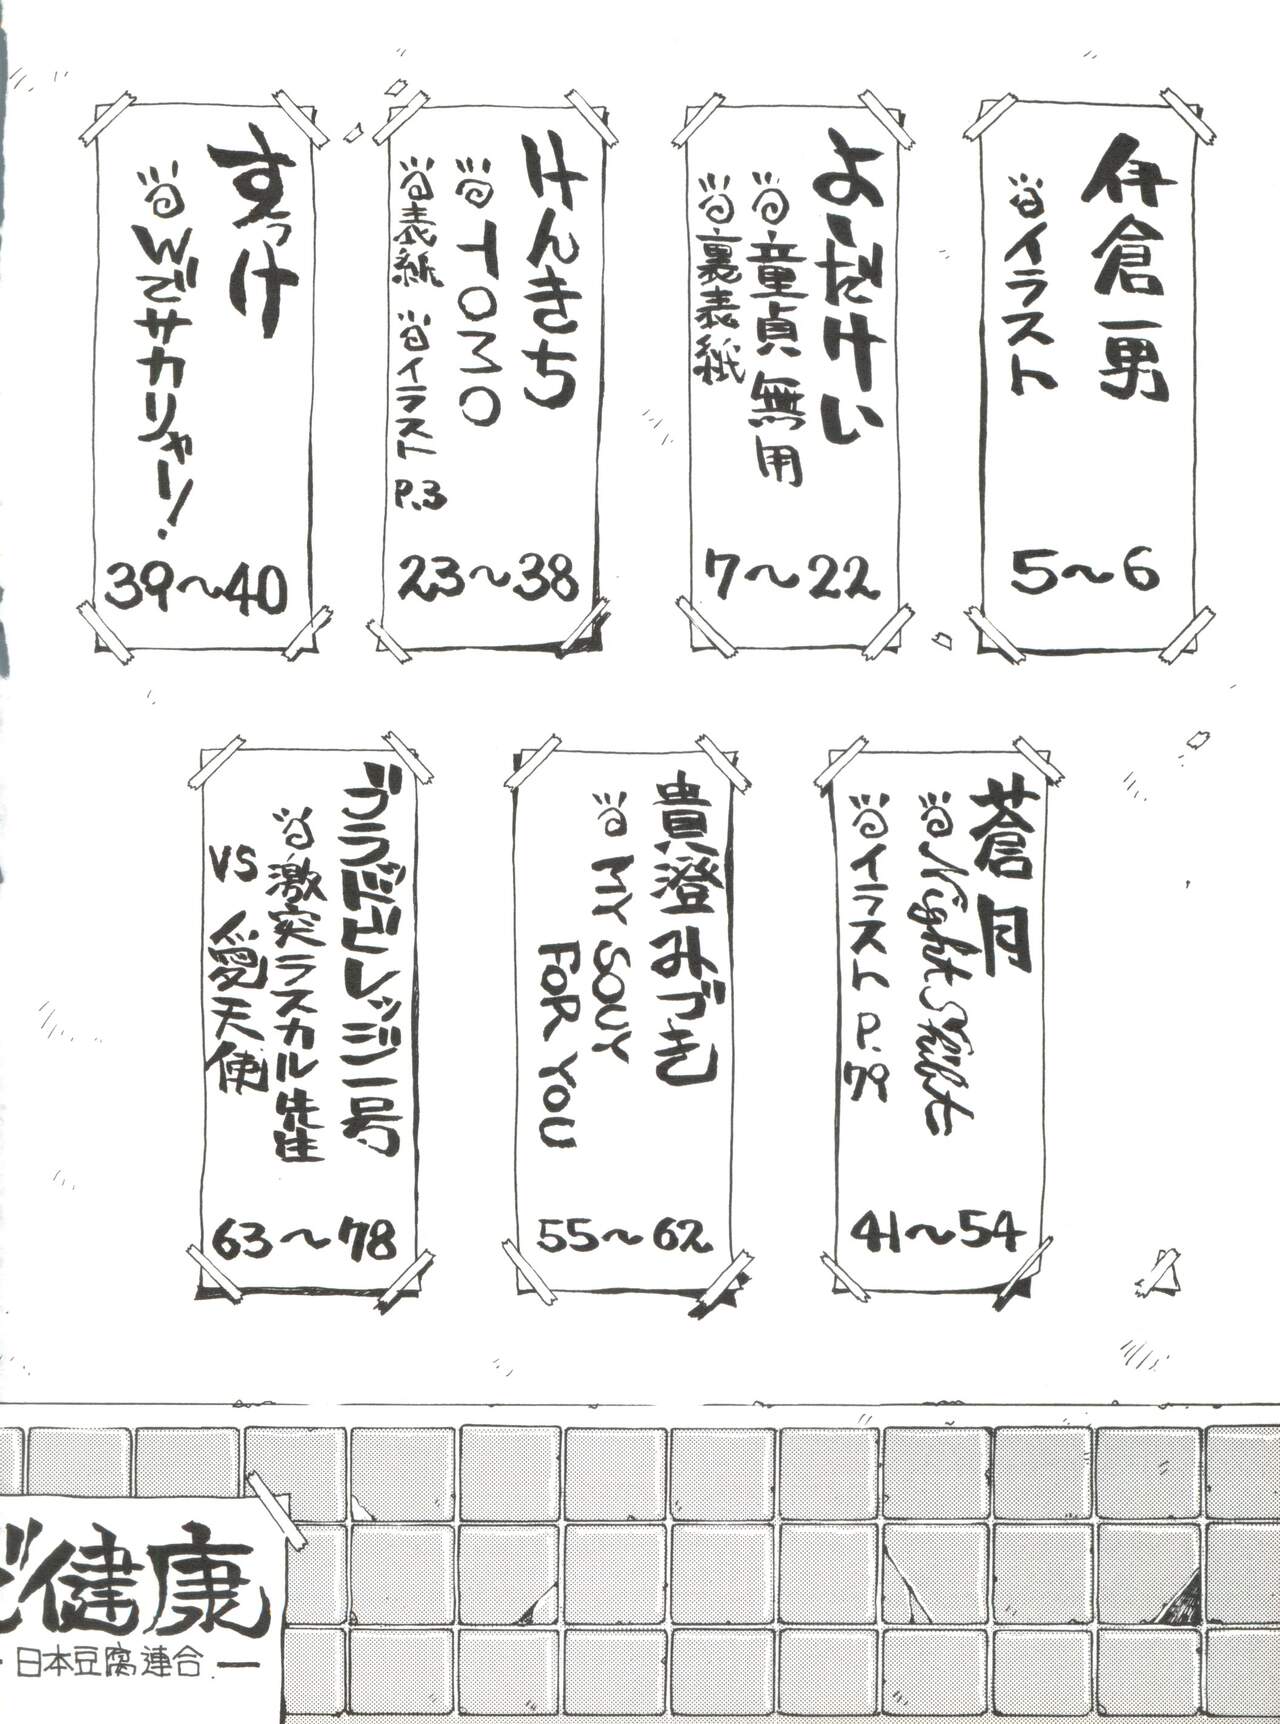 伊倉一男
イラスト
5〜6
よしだけい
童貞無用
裏表紙
7〜22
けんきち
TOMO
表紙 イラスト P.3
23〜38
すっけ
Wでサカリャー!
39〜40
蒼月
Night Shift
イラスト P.79
41〜54
貴澄みづき
MY SOUY
FOR YOU
55〜62
ブラドビレッジ一号
激突ラスカル先生
VS 愛天使
63〜78
健康
日本豆腐連合